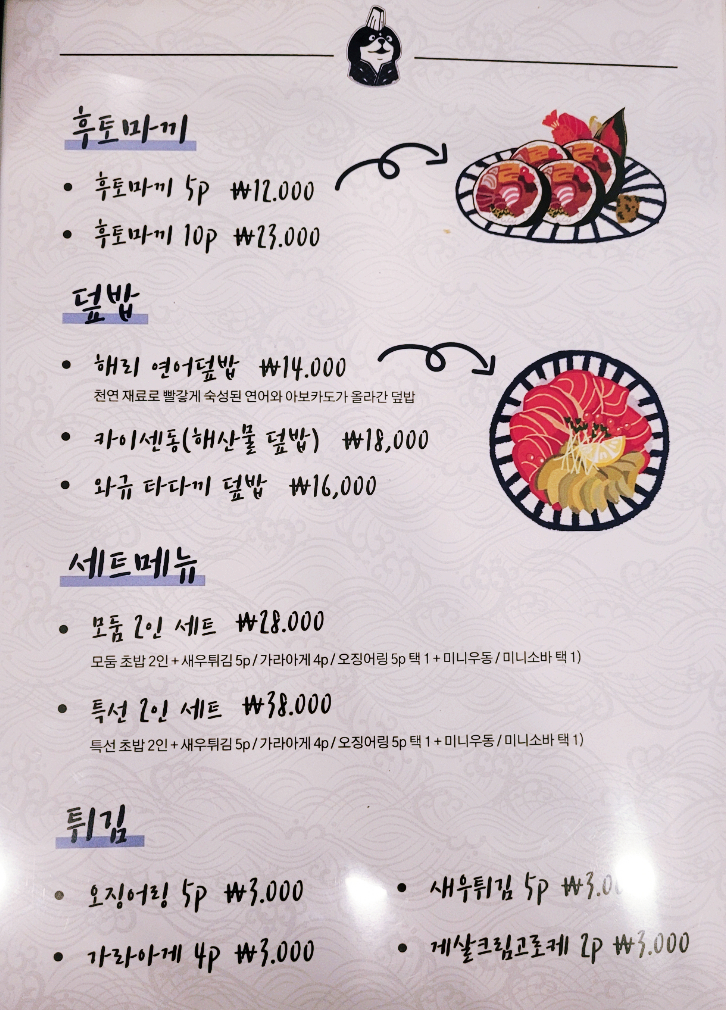 후토마끼
후토마끼 5p ₩12.000
후토마끼 10p ₩23.000
덮밥
해리 연어덮밥 ₩14.000
천연 재료로 빨갛게 숙성된 연어와 아보카도가 올라간 덮밥
카이센동(해산물 덮밥) ₩18,000
와규 타다끼 덮밥 ₩16,000
세트메뉴
모둠 2인 세트 ₩28.000
모둠 초밥 2인 + 새우튀김 5p / 가라아게 4p / 오징어링 5p 택 1 + 미니우동 / 미니소바 택 1)
특선 2인 세트 ₩38.000
특선 초밥 2인 + 새우튀김 5p / 가라아게 4p / 오징어링 5p 택 1 + 미니우동 / 미니소바 택 1)
튀김
오징어링 5p ₩3.000
새우튀김 5p
가라아게 4p ₩3.000
게살크림고로케 2p ₩3.000